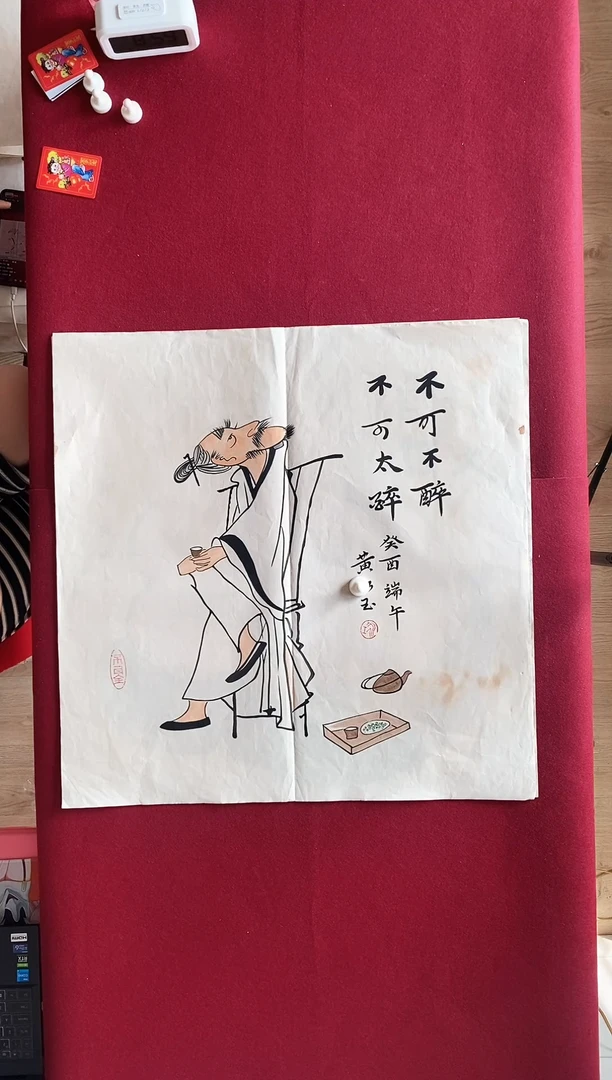 不可不醉
不可太醉
癸酉端午
黄 玉